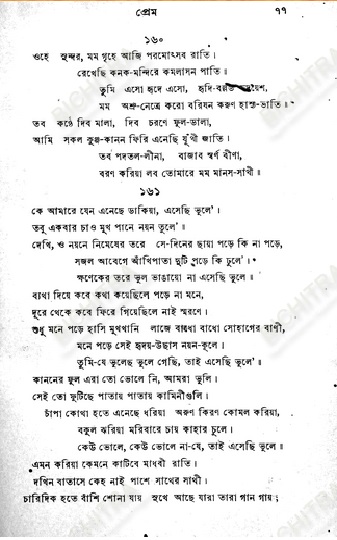 প্রেম ৭৭
১৬০
ওহে সুন্দর, মম গৃহে আজি পরমোৎসব রাতি।
রেখেছি কনক-মন্দিরে কমলাসন পাতি॥
তুমি এসো হৃদে এসো, হৃদি-বল্লভ হৃদয়েশ,
মম অশ্রু-নেত্রে করো বরিষন করুণ হাস্য-ভাতি॥
তব কণ্ঠে দিব মালা, দিব চরণে ফুল-ডালা,
আমি সকল কুঞ্জ-কানন ফিরি এনেছি যূথী জাতি।
তব পদতল-লীনা, বাজাব স্বর্ণ বীণা,
বরণ করিয়া লব তোমারে মম মানস-সাথী॥
১৬১
কে আমারে যেন এনেছে ডাকিয়া, এসেছি ভুলে'।
তবু একবার চাও মুখ পানে নয়ন তুলে'॥
দেখি, ও নয়নে নিমেষের তরে সে-দিনের ছায়া পড়ে কি না পড়ে,
সজল আবেগে আঁখিপাতা দুটি পড়ে কি ঢুলে'।
ক্ষণেকের তরে ভুল ভাঙায়ো না এসেছি ভুলে॥
ব্যথা দিয়ে কবে কথা কয়েছিলে পড়ে না মনে,
দূরে থেকে কবে ফিরে গিয়েছিলে নাই স্মরণে।
শুধু মনে পড়ে হাসি মুখখানি লাজে বাধো বাধো সোহাগের বাণী,
মনে পড়ে সেই হৃদয়-উছাস নয়ন-কূলে।
তুমি-যে ভুলেছ ভুলে গেছি, তাই এসেছি ভুলে'॥
কাননের ফুল এরা তো ভোলে নি, আমরা ভুলি।
সেই তো ফুটিছে পাতায় পাতায় কামিনীগুলি।
চাঁপা কোথা হতে এনেছে ধরিয়া অরুণ কিরণ কোমল করিয়া,
বকুল ঝরিয়া মরিবারে চায় কাহার চুলে।
কেউ ভোলে, কেউ ভোলে না-যে, তাই এসেছি ভুলে॥
এমন করিয়া কেমনে কাটিবে মাধবী রাতি।
দখিন বাতাসে কেহ নাই পাশে সাথের সাথী।
চারিদিক হতে বাঁশি শোনা যায় সুখে আছে যারা তারা গান গায়;